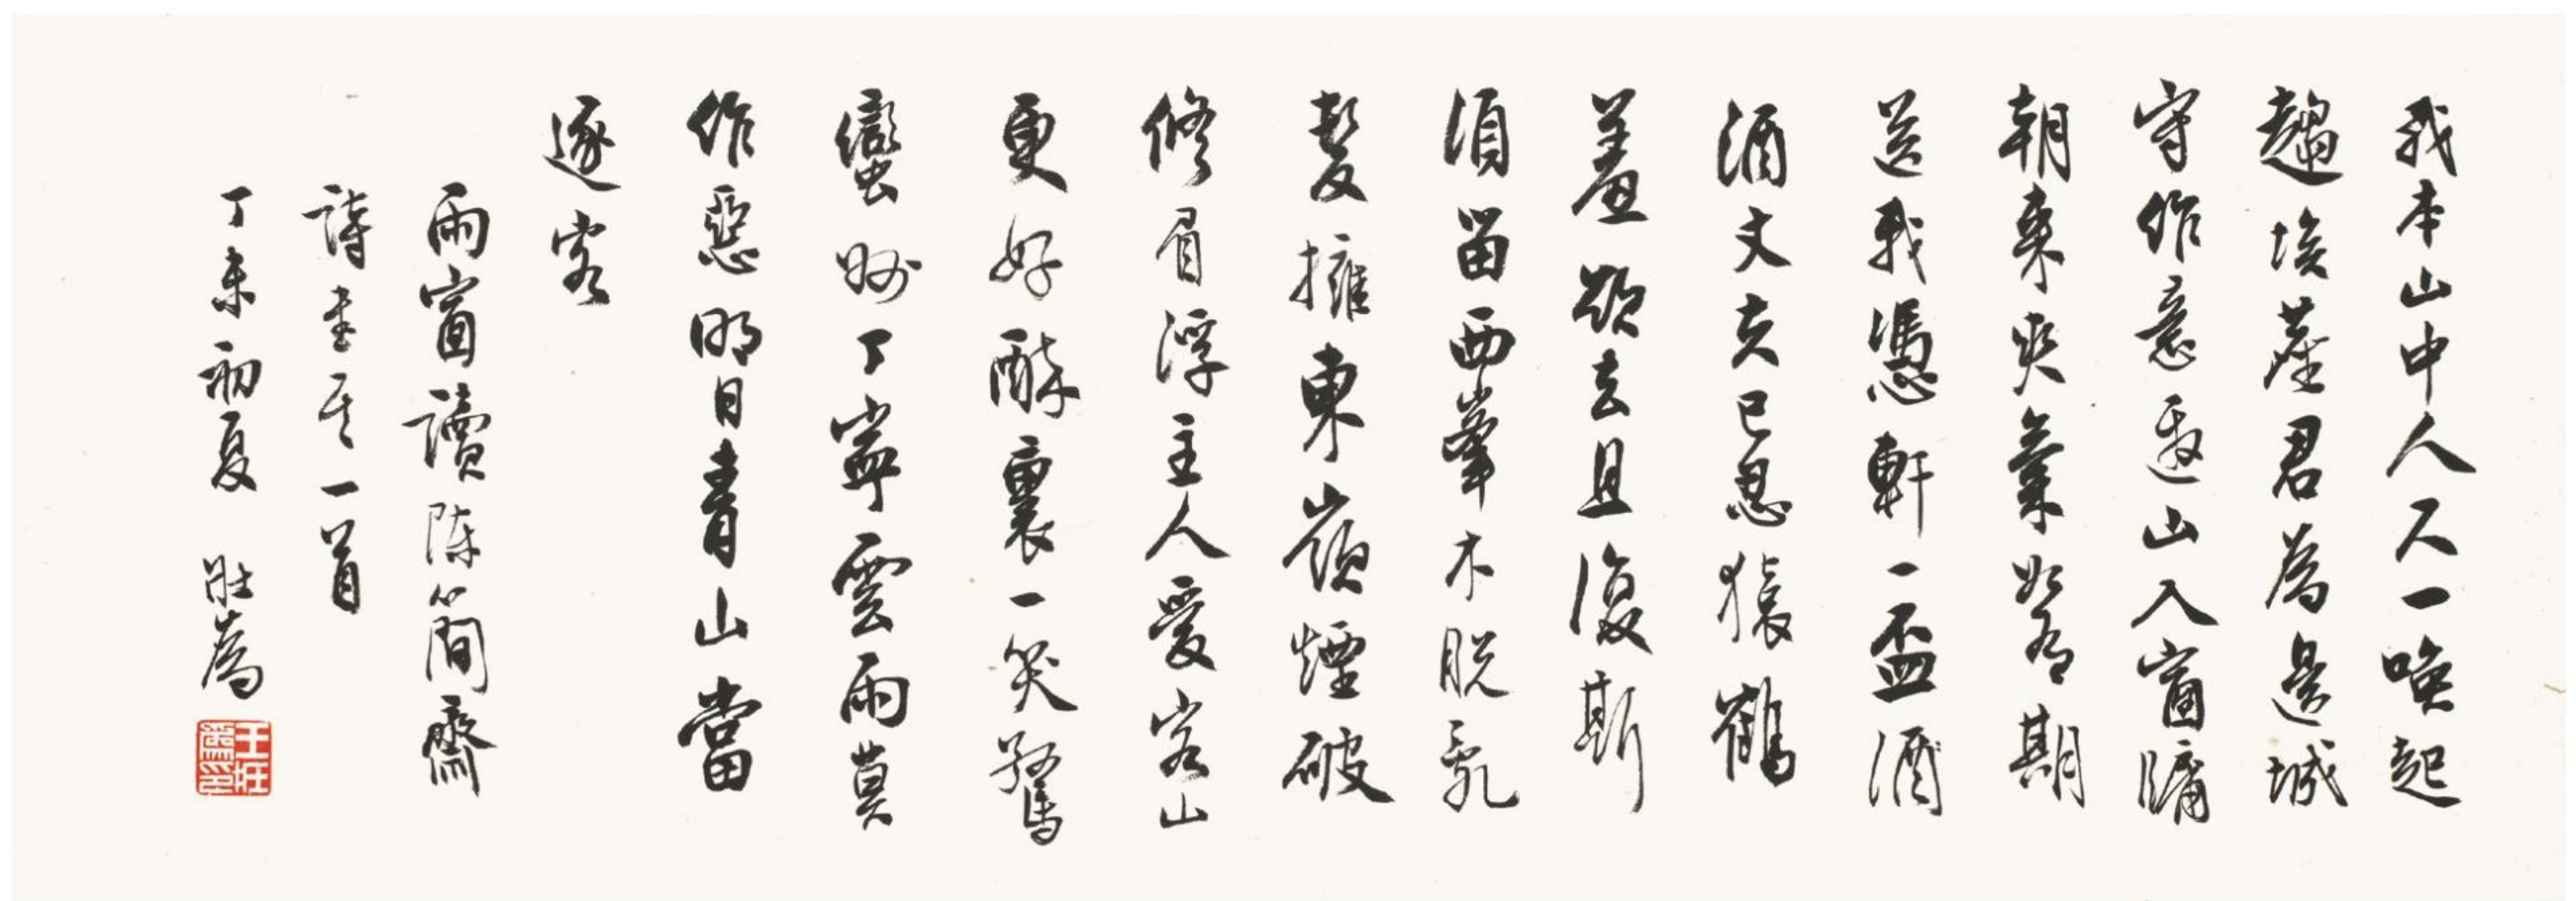 我本山中人尺一喚起
趨埃塵君為邊城
守作意邀山入窗牖
朝來爽氣如有期
送我憑軒一盃酒
酒丈夫已忍猿鶴
羞欲去且復斯
須留西峯木脫亂
髮擁東嶺煙破
修眉浮主人愛客山
更好醉裏一笑驚
蠻丁寧雲雨莫
作惡明日青山當
逐客
雨窗讀陳簡齋
詩書其一首
丁未初夏 壯為
王壯為印